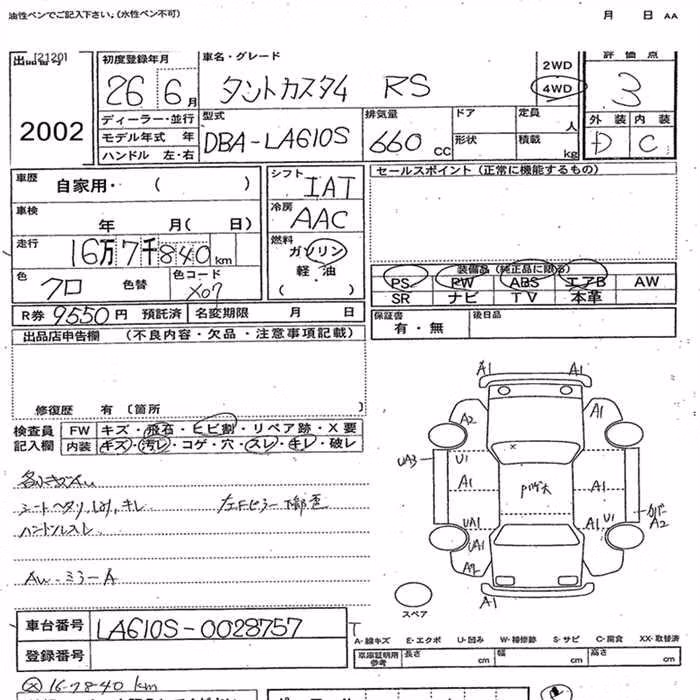 油性ペンでご記入下さい。(水性ペン不可) 月 日 AA
[2120]
2002
初度登録年月
26 6月
車名・グレード
タントカスタム RS
2WD
4WD
評価点
3
外装 内装
D C
ディーラー・並行
モデル年式 年
ハンドル 左・右
型式
DBA-LA610S
排気量
660 cc
ドア
形状
定員
人
積載
kg
車歴
自家用・( )
車検
年 月( 日)
走行
16万7千840km
色
クロ 色替
色コード
X07
シフト
IAT
冷房
AAC
燃料
ガソリン
軽油
( )
セールスポイント (正常に機能するもの)
装備品 (純正品に限る)
PS PW ABS エアB AW
SR ナビ TV 本革
R券 9550円 預託済 名変期限 月 日
保証書
有・無
後日品
出品店申告欄 (不良内容・欠品・注意事項記載)
修復歴 有 〔箇所 〕
検査員
記入欄
FW キズ・飛石・ヒビ割・リペア跡・X要
内装 キズ・汚レ・コゲ・穴・スレ・キレ・破レ
シートヘタリ キレ
ハンドルスレ
AW・ミラーA
A1 A1
A2 A1
UA3 U1
A1 A1
UA1 A1 U1
UA1
A2
A1
カバー
A2
スペア
車台番号 LA610S-0028757
登録番号
A-線キズ E-エクボ U-凹み W-補修跡 S-サビ C-腐食 XX-取替済
車庫証明用
参考
長さ cm 幅 cm 高さ cm
16-7840 km